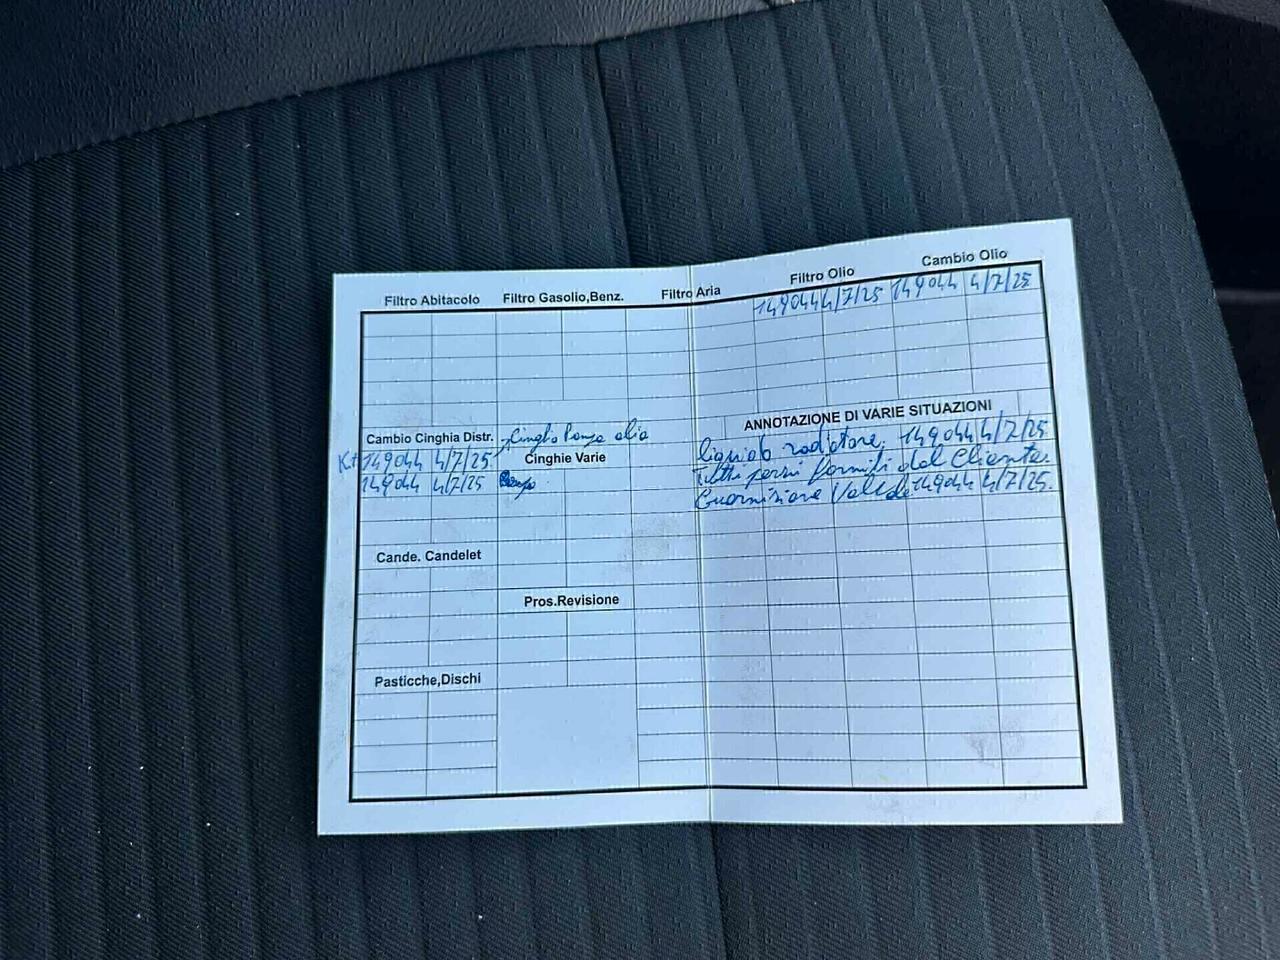 Filtro Abitacolo Filtro Gasolio,Benz. Filtro Aria Filtro Olio Cambio Olio
149044 4/7/25 149044 4/7/25
ANNOTAZIONE DI VARIE SITUAZIONI
Cambio Cinghia Distr. Cinghia Pompa olio
Cinghie Varie
Kit 149044 4/7/25
149044 4/7/25
liquido radiatore 149044 4/7/25
Tutti pezzi forniti dal Cliente.
Guarnizione 149044 4/7/25.
Cande. Candelet
Pros.Revisione
Pasticche,Dischi